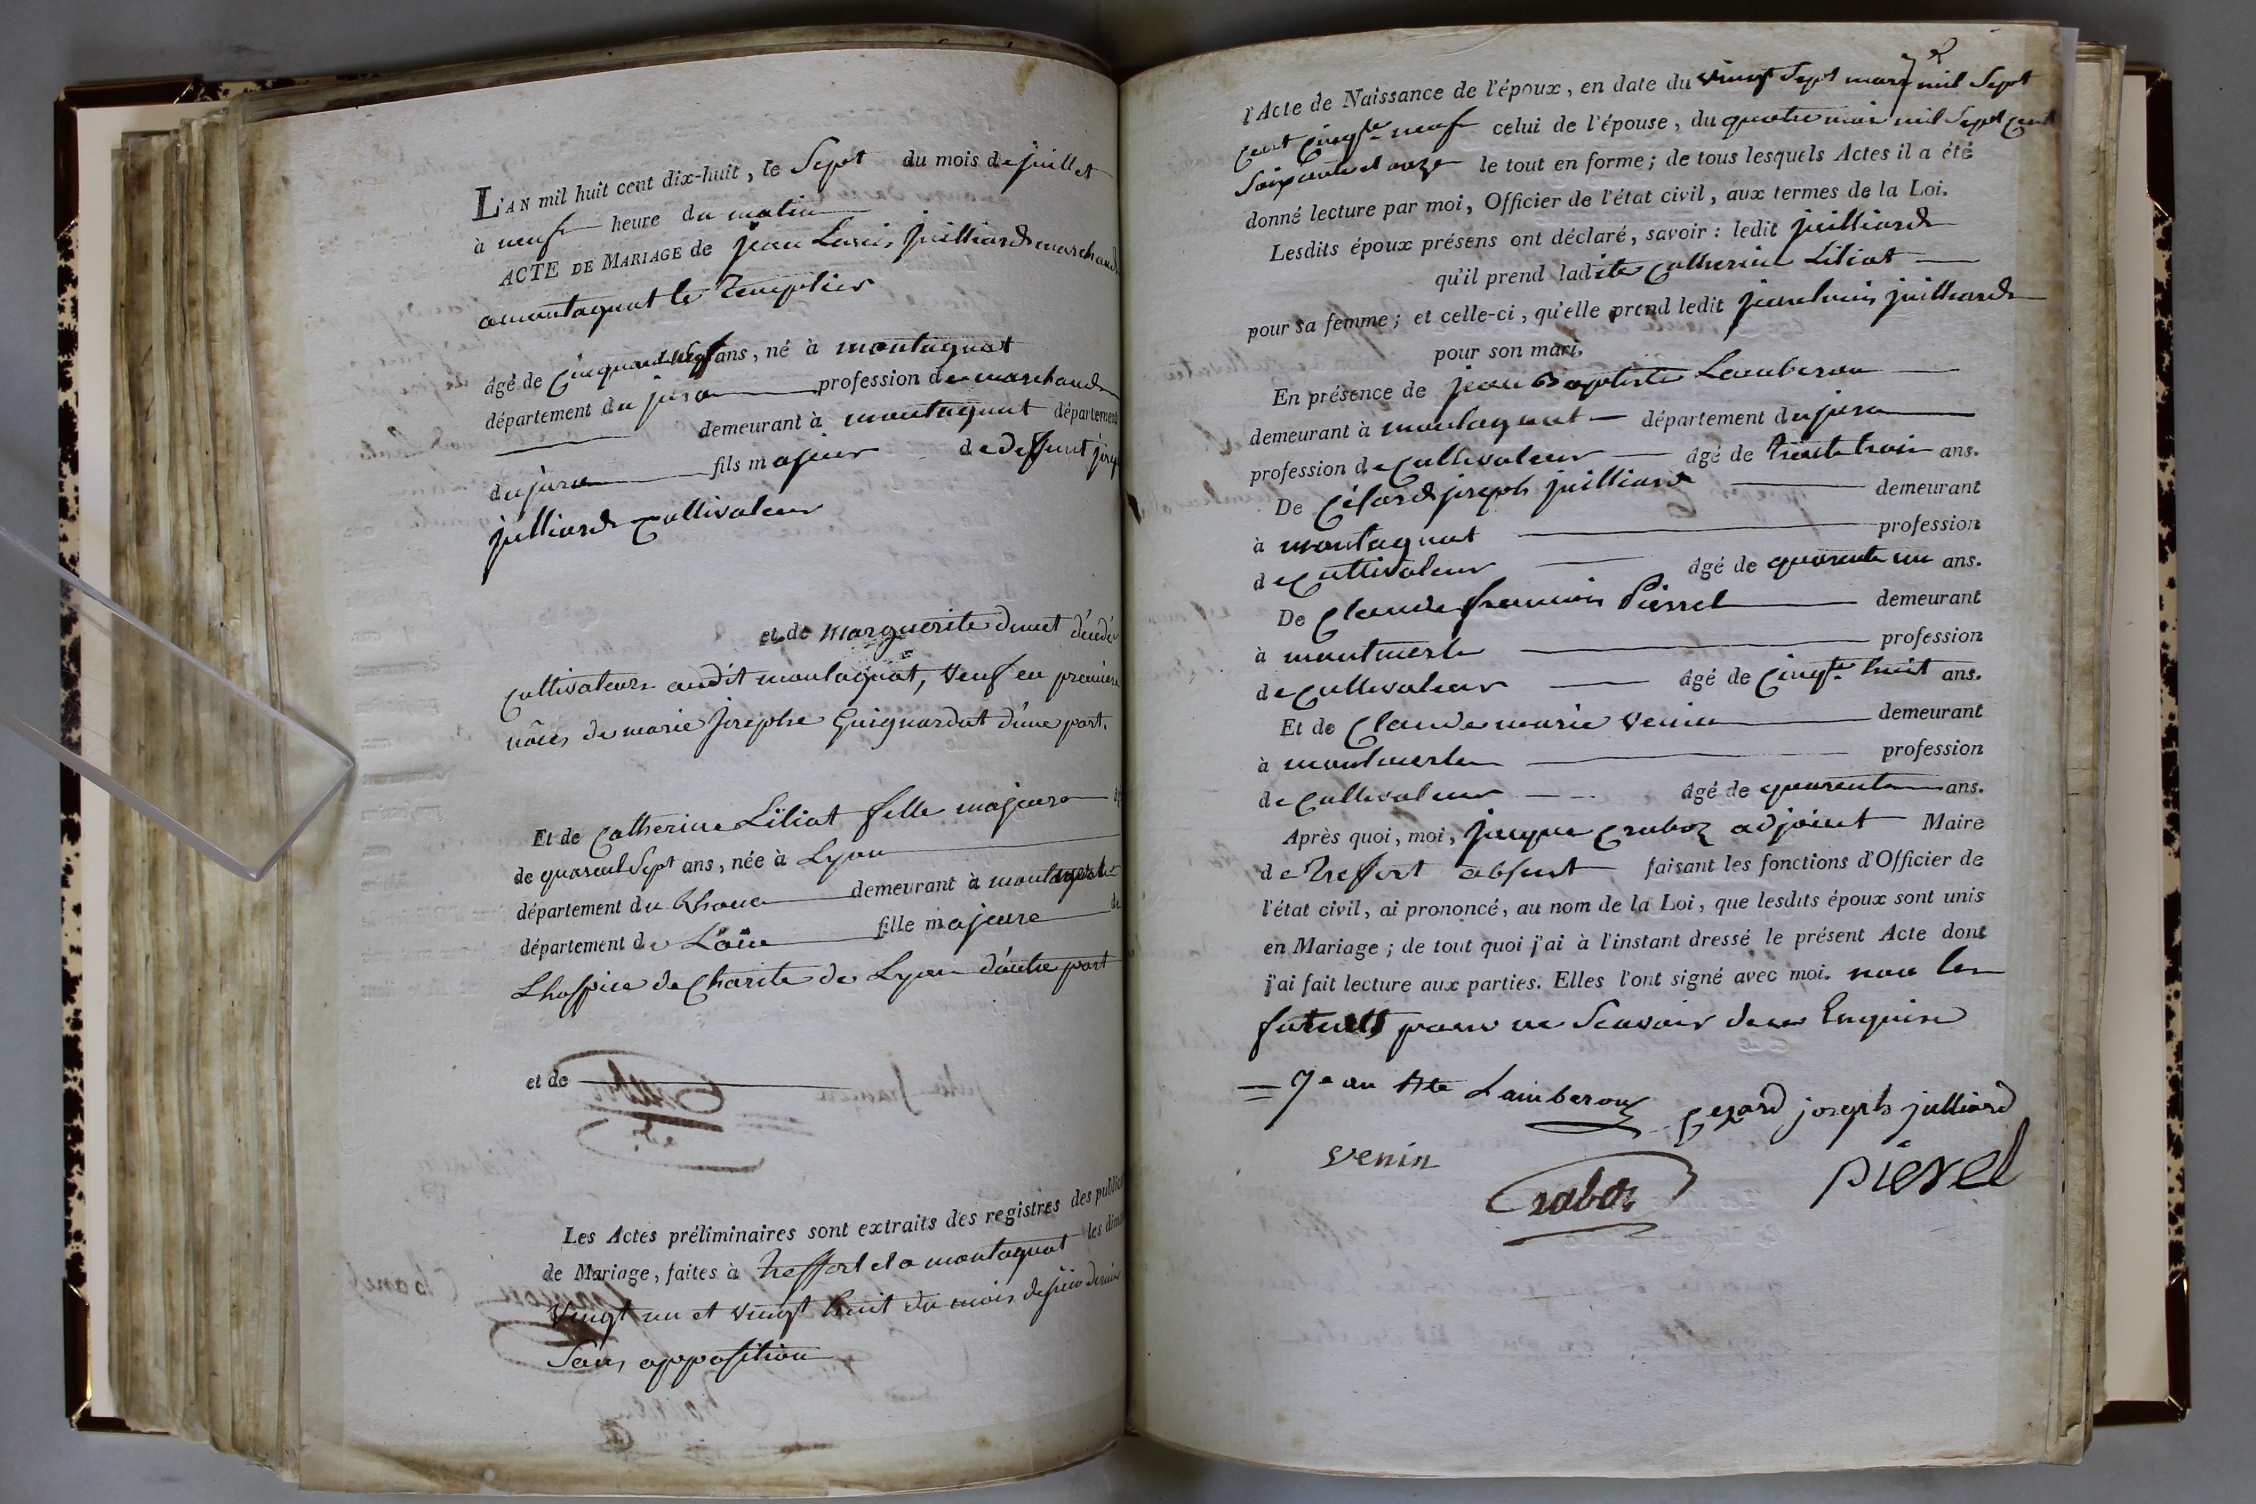 L'AN mil huit cent dix-huit, le Sept du mois de juillet
à neuf heure du matin
ACTE DE MARIAGE de jean Louis juilliard marchand
a montagnat le Templier
âgé de Cinquante neuf ans, né à montagnat
département du jura profession de marchand
demeurant à montagnat département
du jura fils majeur de deffunt josep
julliard Cultivateur
et de Marguerite
Cultivateurs audit montagnat, veuf en première
nôces de marie Josephe Guignardat d'une part.
Et de Catherine Liliat fille majeure
de quarente Sept ans, née à Lyon
département du Rhone demeurant à
département de L'ain fille majeure de
L'hospice de Charité de Lyon d'autre part
et de
Les Actes préliminaires sont extraits des registres des public
de Mariage, faites à Treffort et a montagnat les dim
vingt un et vingt huit du mois de juin dernier
Sans opposition
l'Acte de Naissance de l'époux, en date du vingt Sept mars mil Sept
Cent Cinqte neuf celui de l'épouse, du quatre mai mil Sept Cent
Soixante et onze le tout en forme; de tous lesquels Actes il a été
donné lecture par moi, Officier de l'état civil, aux termes de la Loi.
Lesdits époux présens ont déclaré, savoir: ledit juilliard
qu'il prend ladite Catherine Liliat
pour sa femme; et celle-ci, qu'elle prend ledit jean louis juilliard
pour son mari.
En présence de jean Baptiste Lamberou
demeurant à montagnat département du jura
profession de Cultivateur âgé de trente trois ans.
De Gérard joseph juilliard demeurant
à montagnat profession
de Cultivateur âgé de quarente un ans.
De Claude francois Pierrel demeurant
à montmerle profession
de Cultivateur âgé de Cinqte huit ans.
Et de Claude marie venin demeurant
à montmerle profession
de Cultivateur âgé de quarente ans.
Après quoi, moi, jacque Craboz adjoint Maire
de Treffort absent faisant les fonctions d'Officier de
l'état civil, ai prononcé, au nom de la Loi, que lesdits époux sont unis
en Mariage; de tout quoi j'ai à l'instant dressé le présent Acte dont
j'ai fait lecture aux parties. Elles l'ont signé avec moi. non les
futurs pour ne Scavoir de ce Enquis
Jean Bte Lamberou
gerard joseph julliard
venin
Craboz
pierel